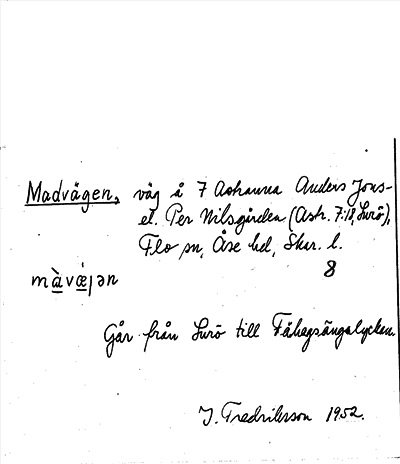 Madvägen, väg å 7 Ashanna Anders Jons-
el. Per Nilsgården (Ash. 7:18, Surö),
Flo sn, Åse hd, Skar. l.
8
màvǽjən
Går från Surö till Fähagsängalyckan.
J. Fredriksson 1952.